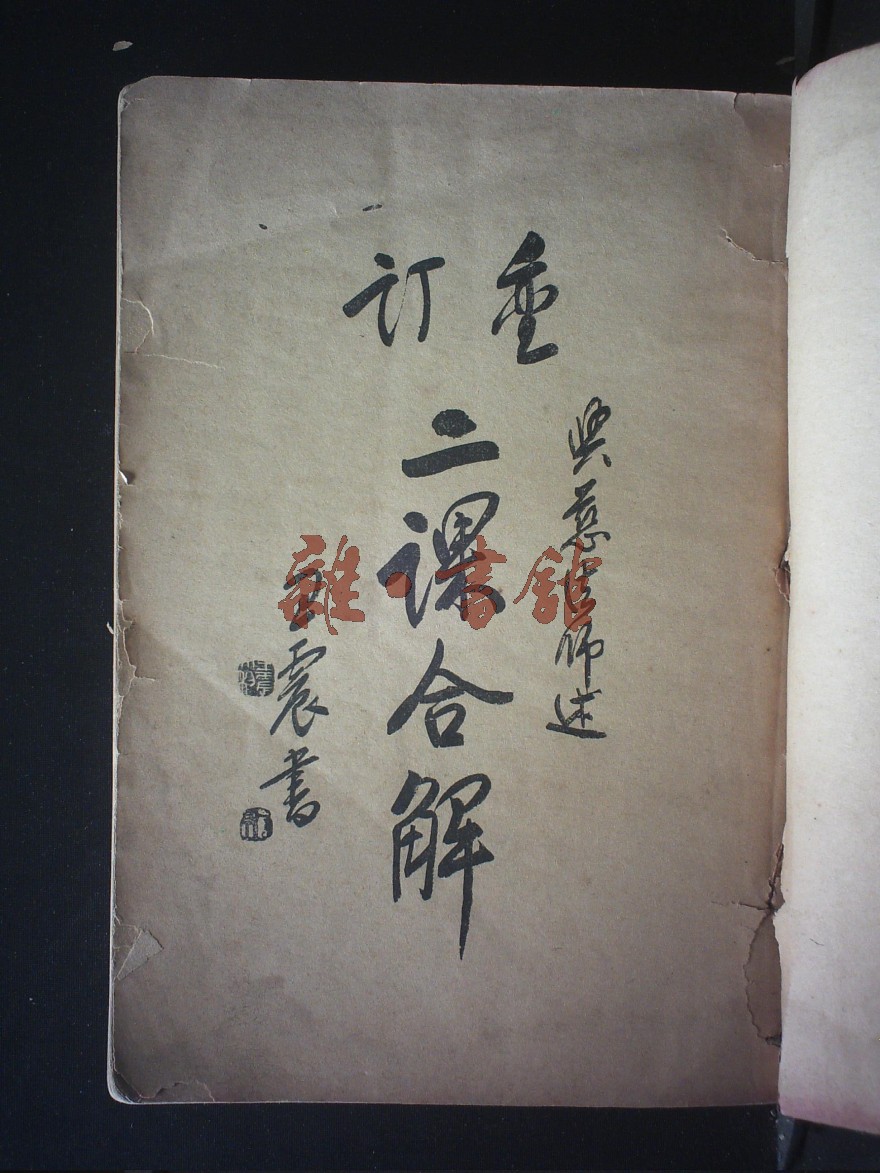 重訂
興慈法師述
二課合解
王震書
雜·書館